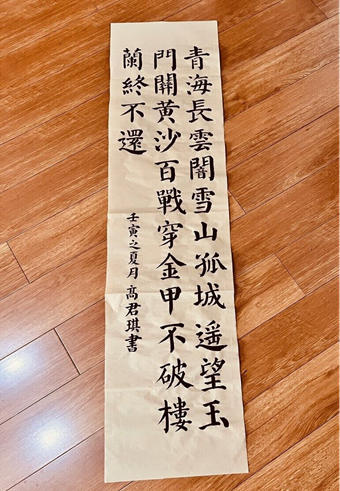 青海長雲闇雪山孤城遥望玉
門關黄沙百戰穿金甲不破樓
蘭終不還
壬寅之夏月 高君琪書